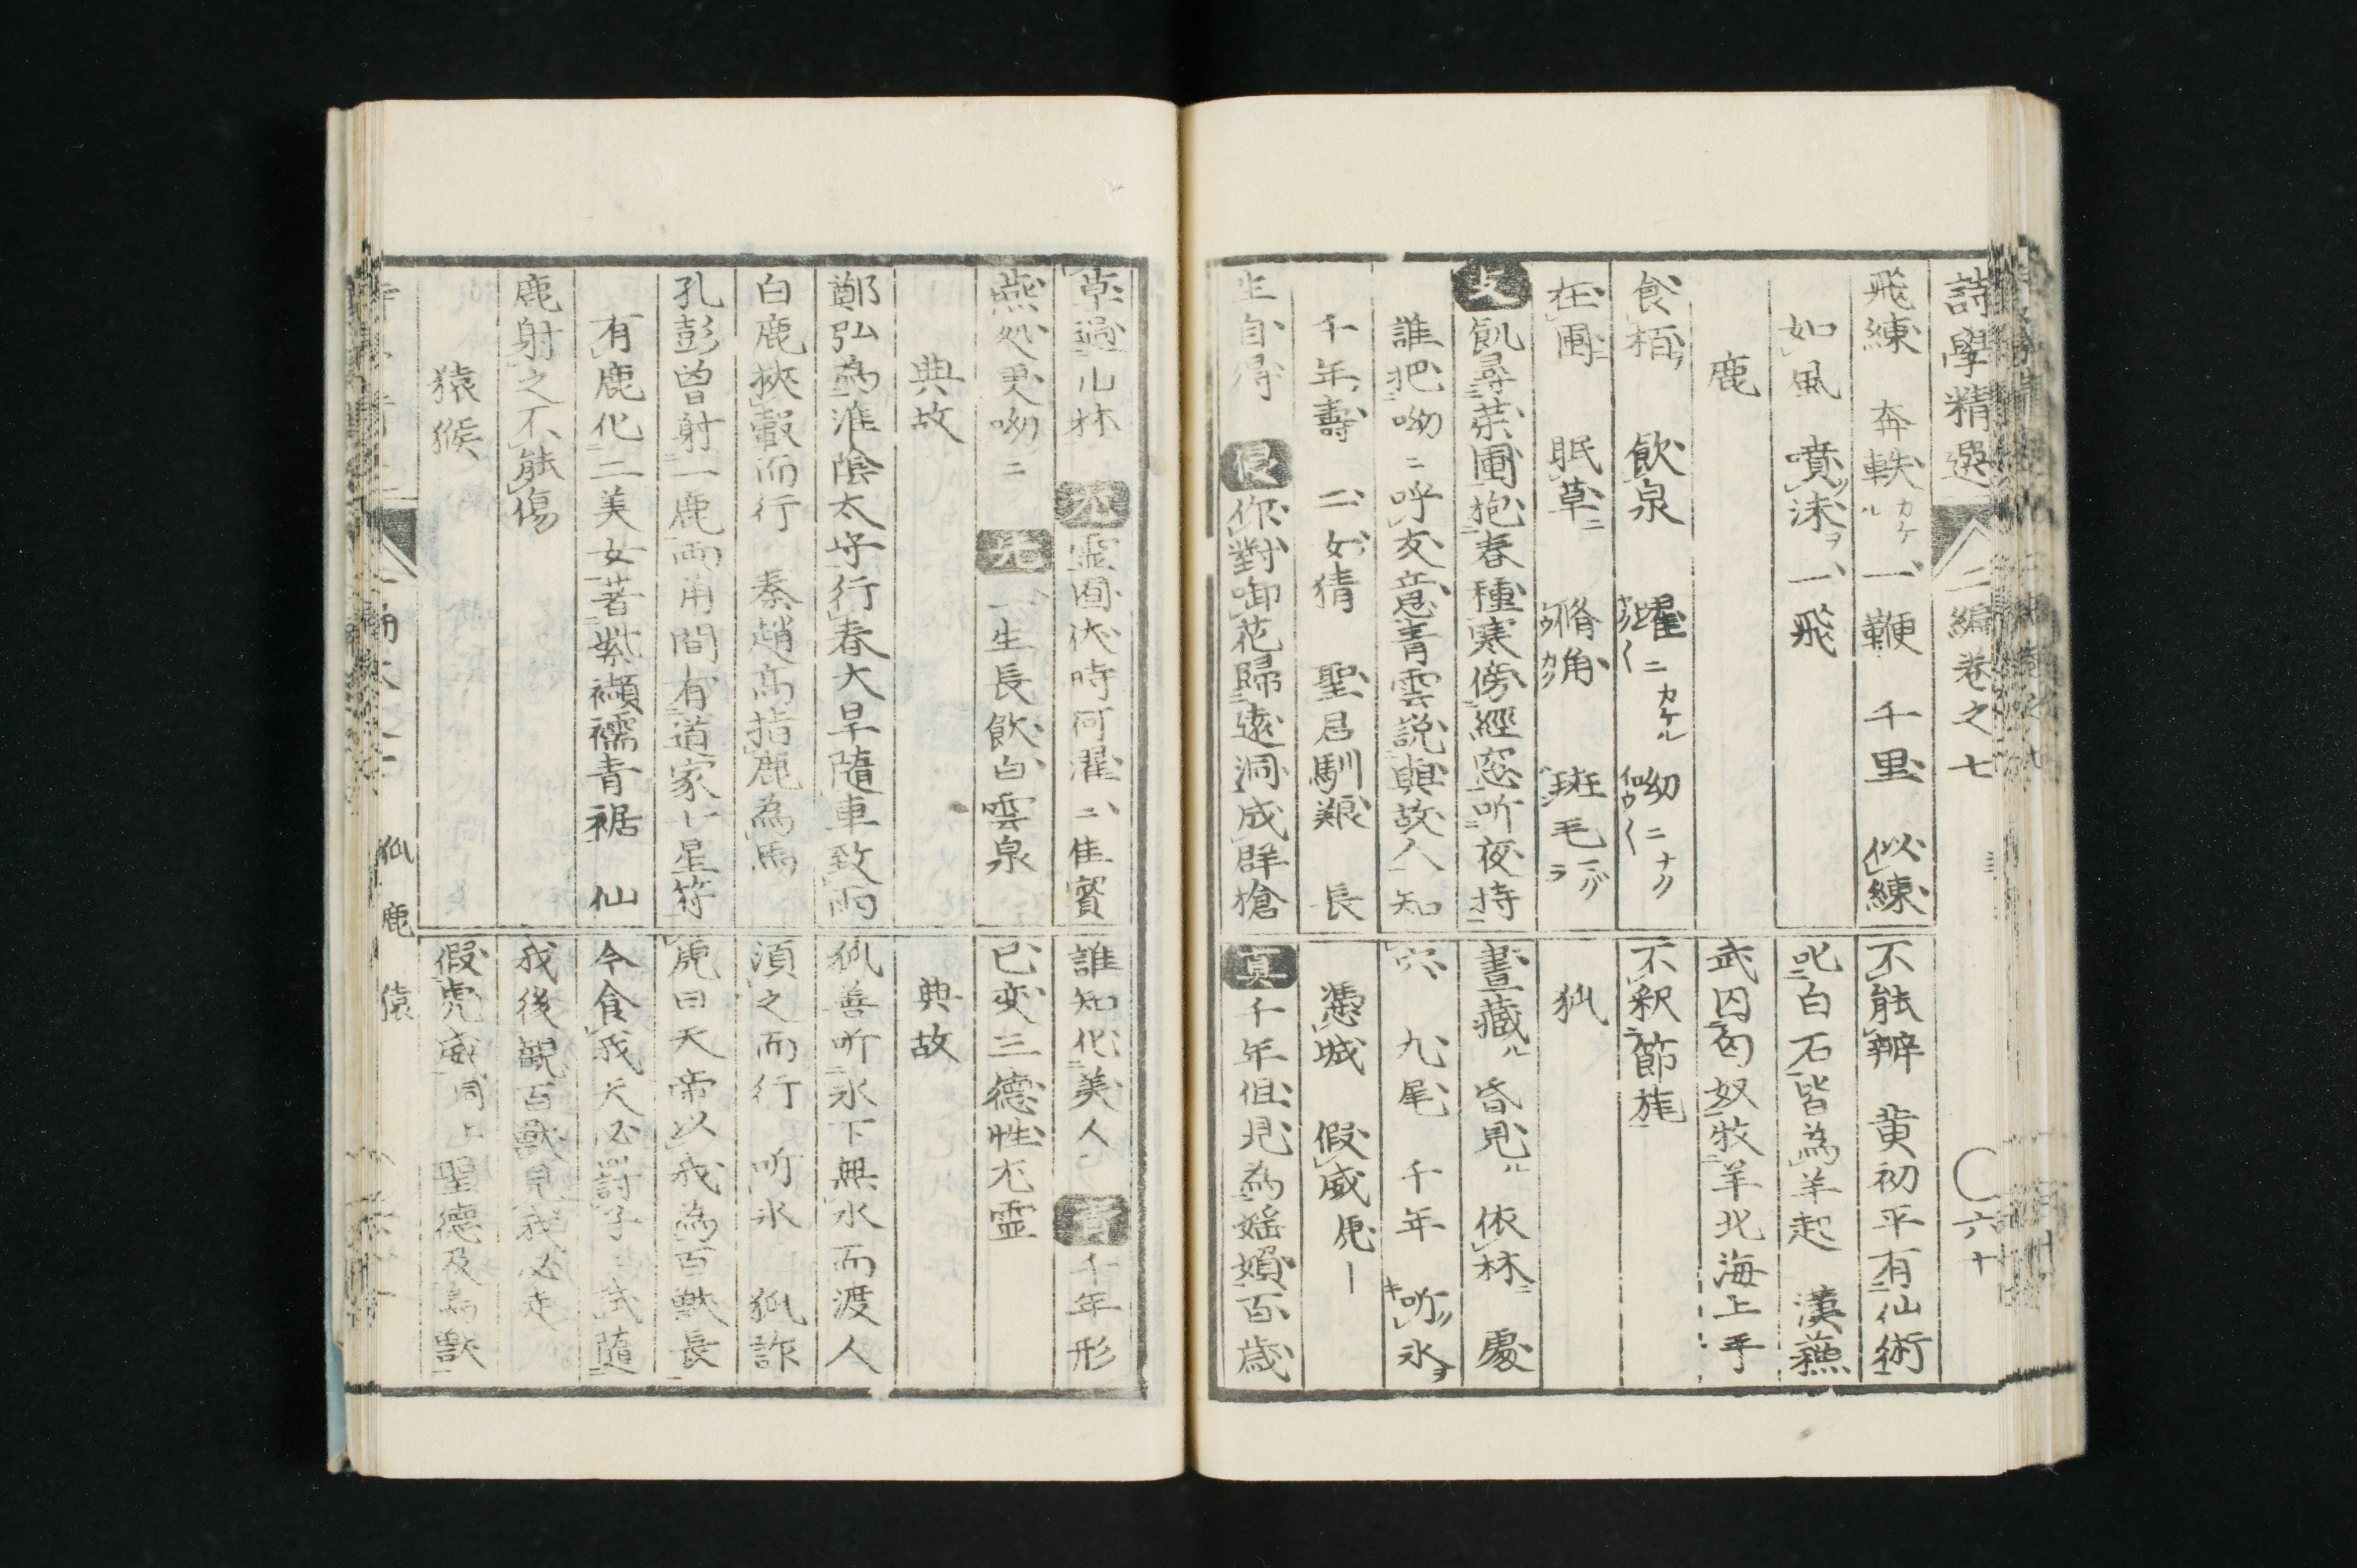 詩學精選 二編卷之七 〇六十
飛練 奔軼 一鞭 千里 似練
如風 噴沫 一飛
鹿
食栢 飲泉 躍〻 呦〻
在囿 眠草 脩角 斑毛
飢尋菜圃抱春種寒傍經窓听夜持
誰把呦〻呼友意青雲説與故人知
千年壽 二女猜 聖君馴 長
生自得 你對啣花歸遠洞成群
不能辨 黄初平有仙術
叱白石皆為羊起 漢蘓
武囚匈奴牧羊北海上手
不釈節旄
狐
晝藏 昏見 依林 處
穴 九尾 千年 听氷
憑城 假威虎
真 千年但見為媱 百歳
草過山林 霊囿伏時何濯〻佳賓
燕処更呦〻 一生長飲白雲泉
典故
鄭弘為淮陰太守行春大旱隨車致雨
白鹿挾轂而行 秦趙高指鹿為馬
孔彭曽射一鹿両角間有道家七星符
有鹿化二美女著紫襭襦青裾 仙
鹿射之不能傷
猿猴
誰知化美人 千年形
已変三德性尤霊
典故
狐善听氷下無水而渡人
須之而行 听氷 狐詐
虎曰天帝以我為百獣長
今食我天必討子〻試隨
我後観百獣見我必走
假虎威同上 聖德及鳥獣
狐 鹿 猿